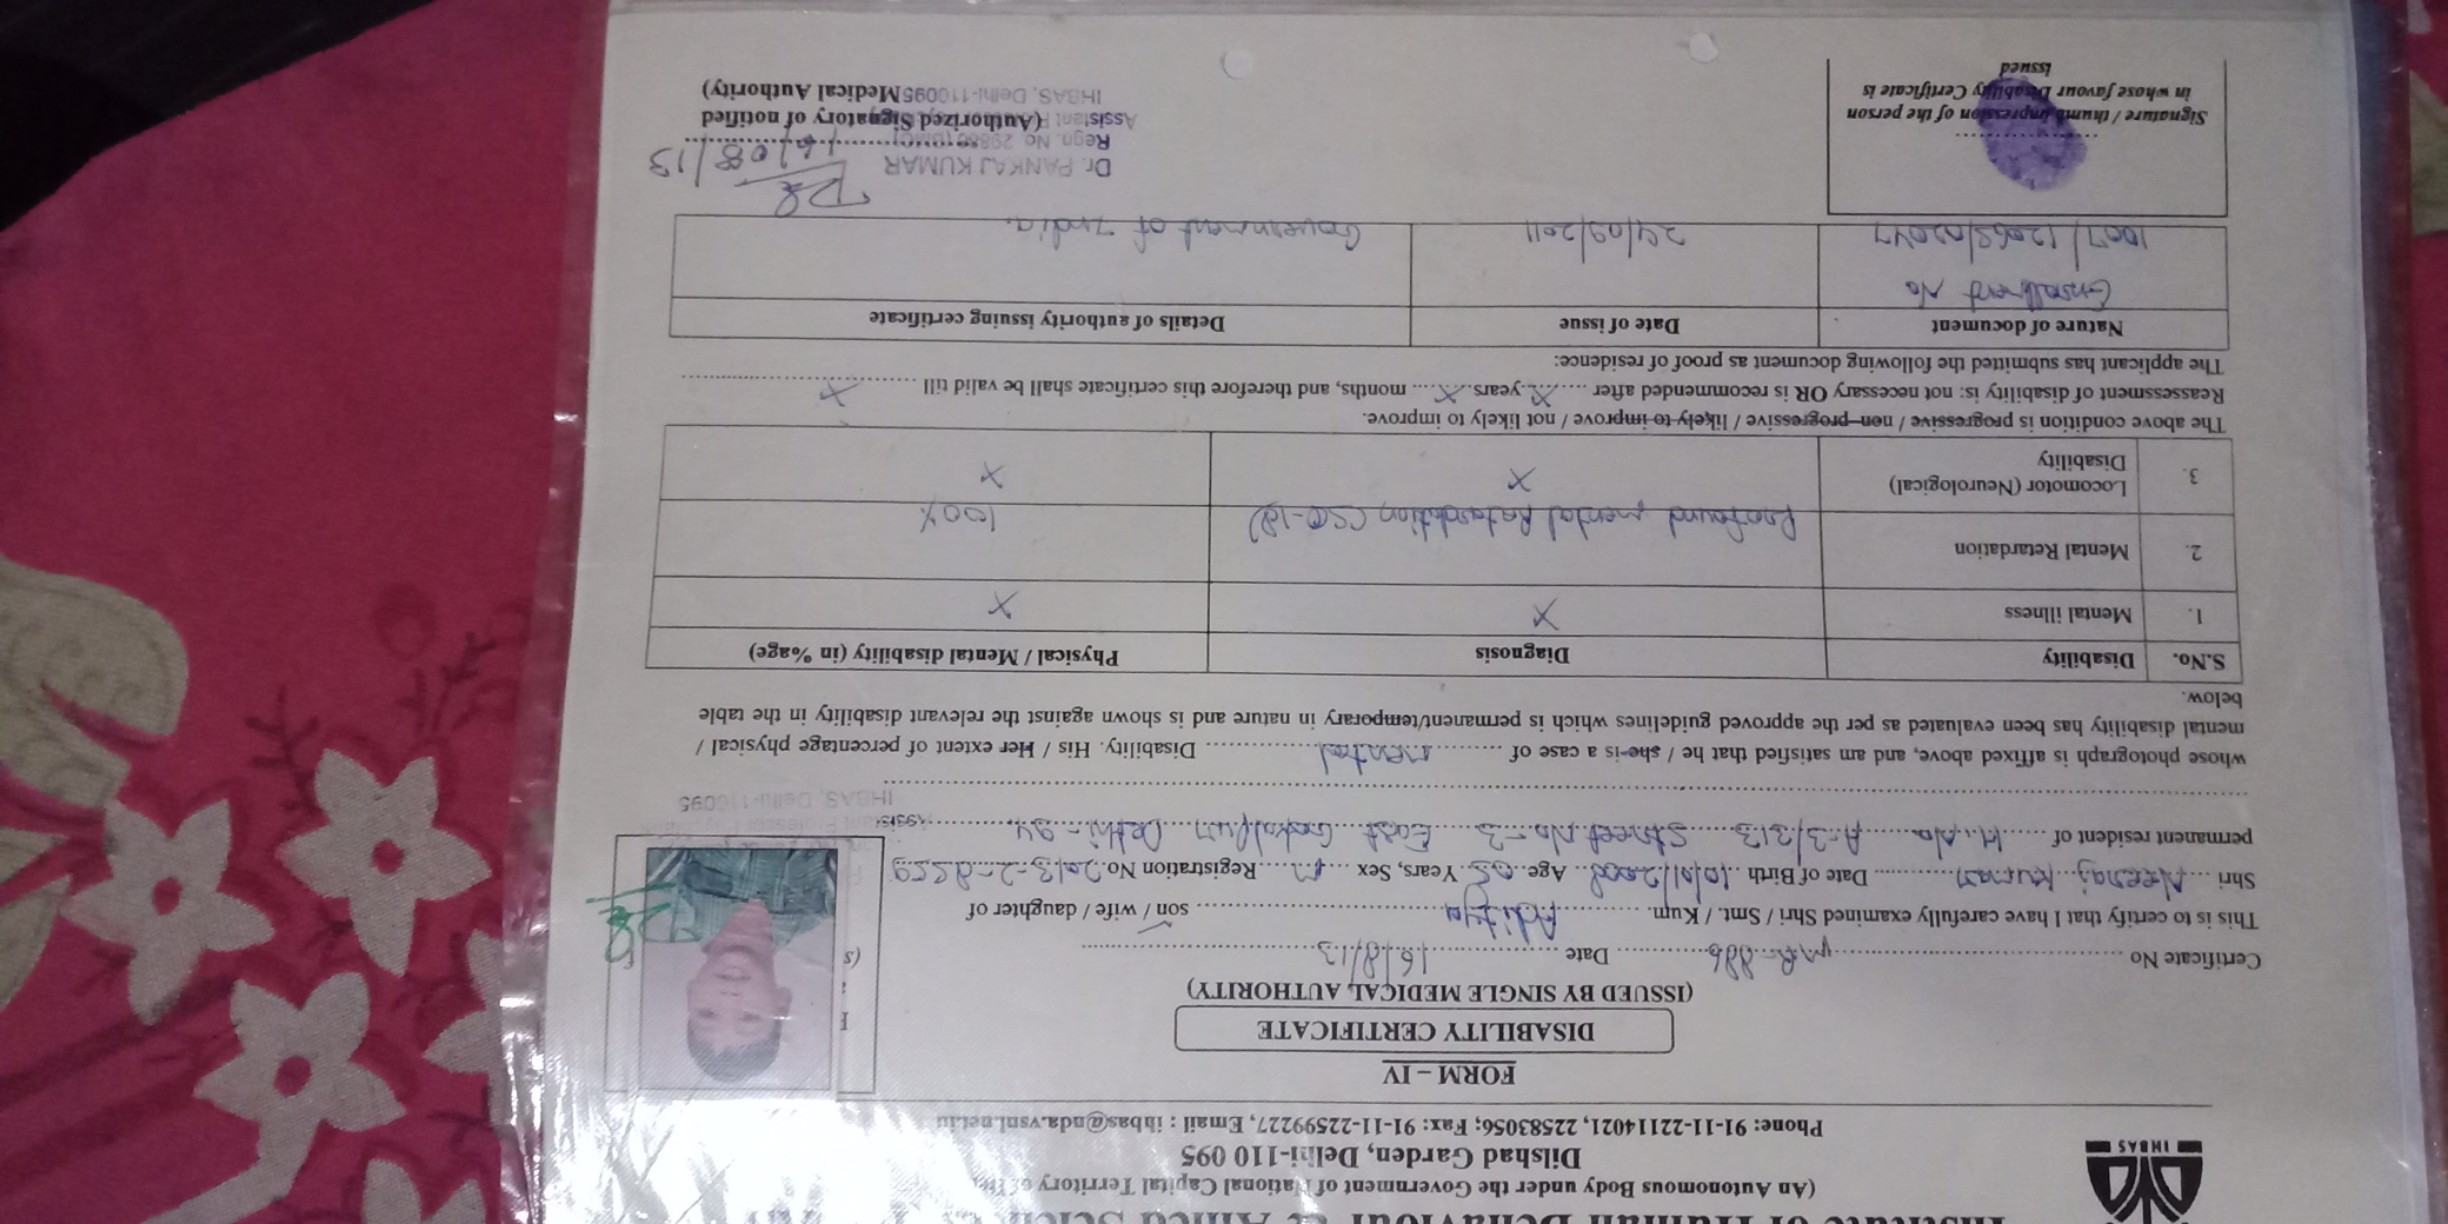 Institute of Human Behaviour & Allied Scien
(An Autonomous Body under the Government of National Capital Territory of
Dilshad Garden, Delhi-110 095
Phone: 91-11-22114021, 22583056; Fax: 91-11-22599227, Email : ihbas@nda.vsnl.net.in
IHBAS
FORM – IV
DISABILITY CERTIFICATE
(ISSUED BY SINGLE MEDICAL AUTHORITY)
Certificate No MR-886 Date 16/8/13
This is to certify that I have carefully examined Shri / Smt. / Kum. Aditya son / wife / daughter of
Shri Neeraj Kumar Date of Birth 10/01/2008 Age 05 Years, Sex M Registration No. 2013-2-8559
permanent resident of H.No. A-3/313 Street No-3 East Gokalpur Delhi-94
IHBAS, Delhi-110095
whose photograph is affixed above, and am satisfied that he / she is a case of mental Disability. His / Her extent of percentage physical /
mental disability has been evaluated as per the approved guidelines which is permanent/temporary in nature and is shown against the relevant disability in the table
below.
S.No. Disability Diagnosis Physical / Mental disability (in %age)
1. Mental illness X X
2. Mental Retardation Profound mental Retardation (SQ-18) 100%
3. Locomotor (Neurological) Disability X X
The above condition is progressive / non-progressive / likely to improve / not likely to improve.
Reassessment of disability is: not necessary OR is recommended after X years X months, and therefore this certificate shall be valid till X
The applicant has submitted the following document as proof of residence:
Nature of document Date of issue Details of authority issuing certificate
Enrollment No
1007/12068/02047 24/09/2011 Government of India.
16/08/13
Dr. PANKAJ KUMAR
Regn. No.
Assistant
IHBAS, Delhi-110095
(Authorized Signatory of notified
Medical Authority)
Signature / thumb impression of the person
in whose favour Disability Certificate is
issued